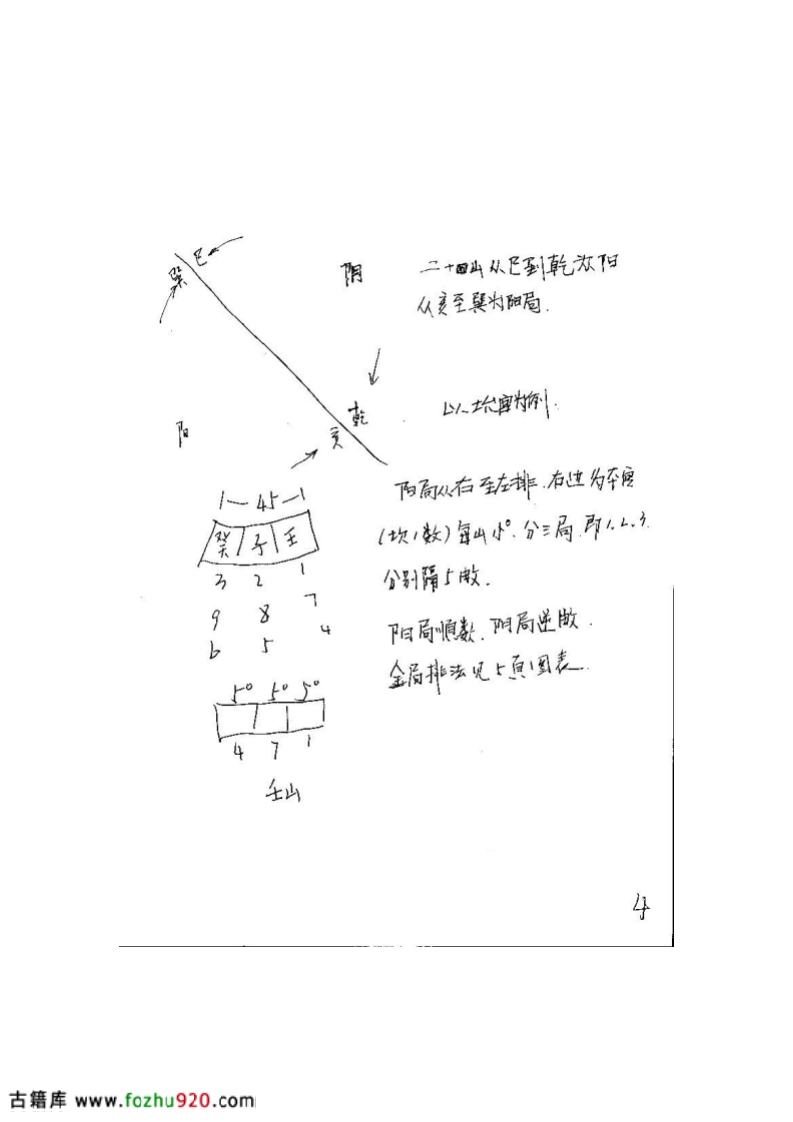 巽 巳
阴
二十四山从巳到乾为阳
从亥至巽为阳局.
以坎宫为例.
乾
亥
阳
阳局从右至左排.右边为本宫
(坎1数)每山15°.分三局.即1.2.3.
分别隔5数.
阳局顺数.阴局逆数.
全局排法见5頁1图表.
1—45—1
癸 子 壬
3 2 1
9 8 7
6 5 4
5° 5° 5°
4 7 1
壬山
4
古籍库 www.fozhu920.com